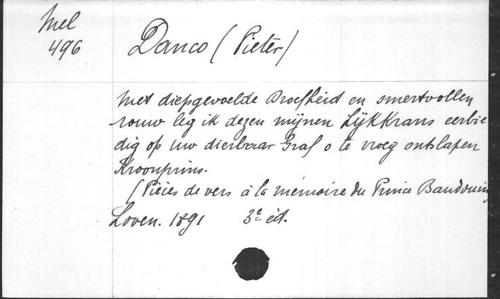 Mel
496
Danco (Pieter)
Met diepgevoelde Droefheid en smertvollen
rouw leg ik dezen mijnen Lijkkrans eerbie
dig op uw dierbaar Graf o te vroeg ontslapen
Kroonprins.
(Pièces de vers à la mémoire du Prince Baudouin
Loven. 1891 3e éd.